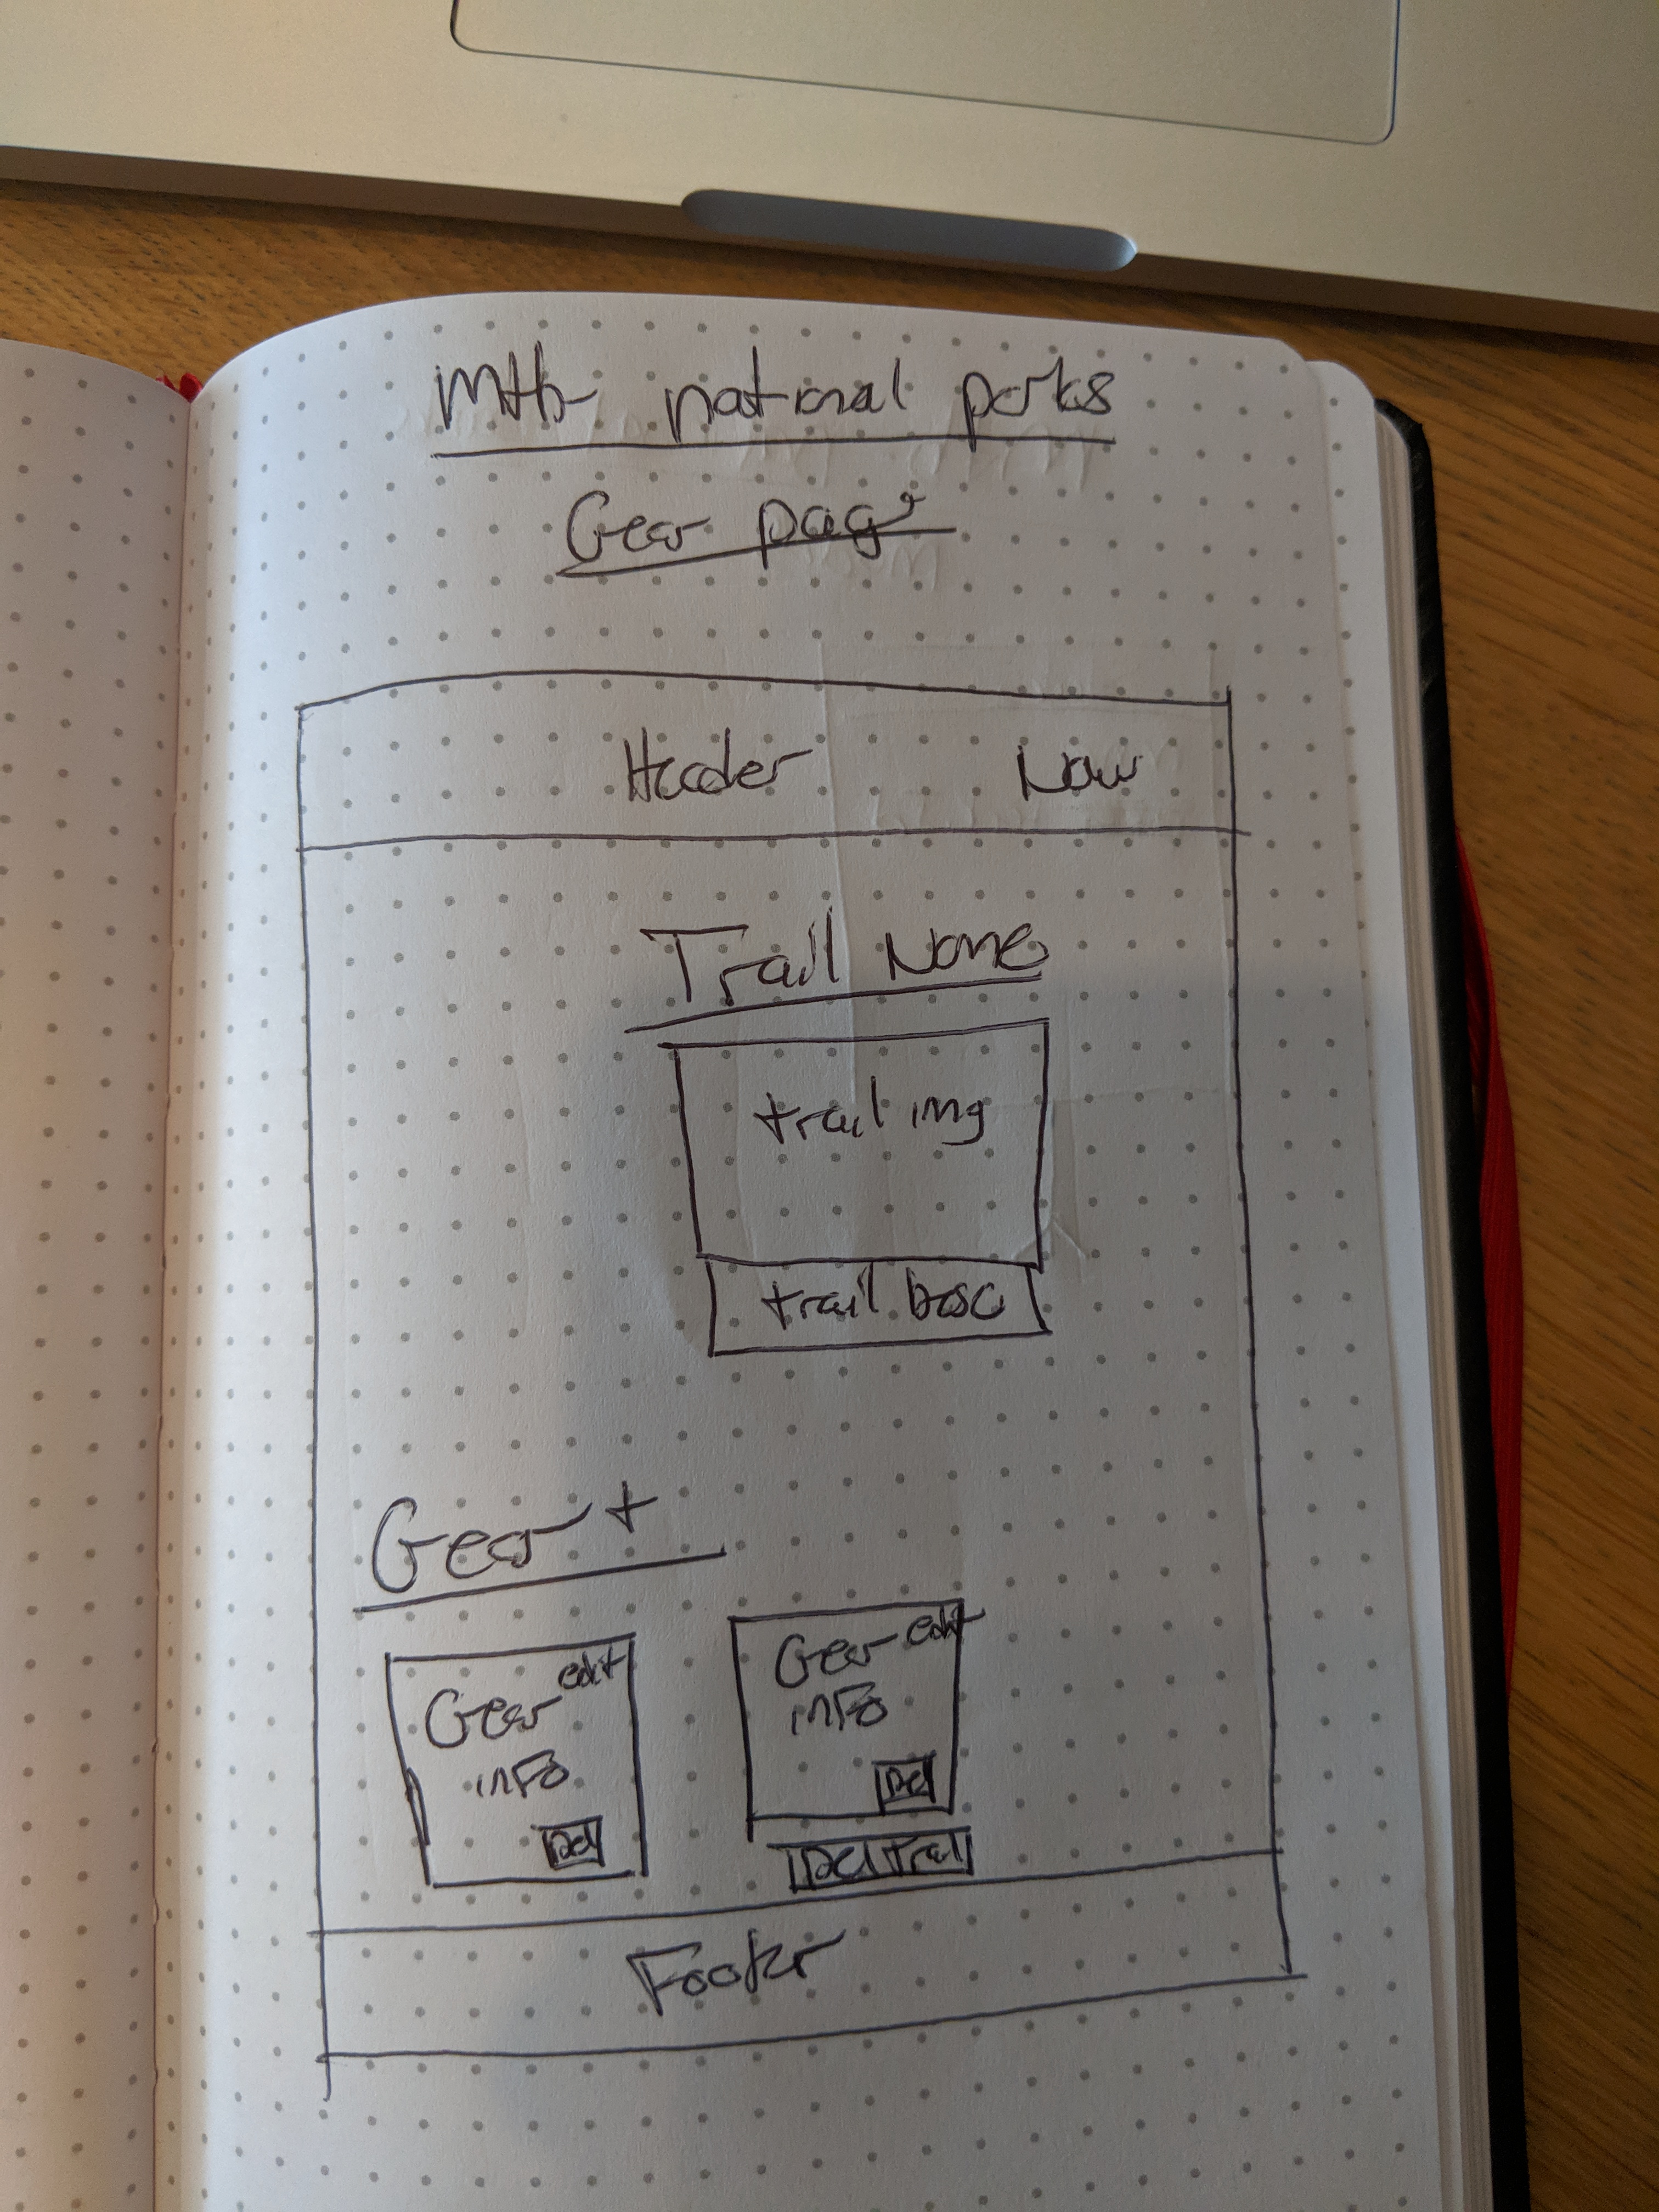 mtb national parks
Gear page
Header Nav
Trail Name
trail img
trail Desc
Gear +
Gear edit
info
Del
Gear edit
info
Del
Del trail
Footer